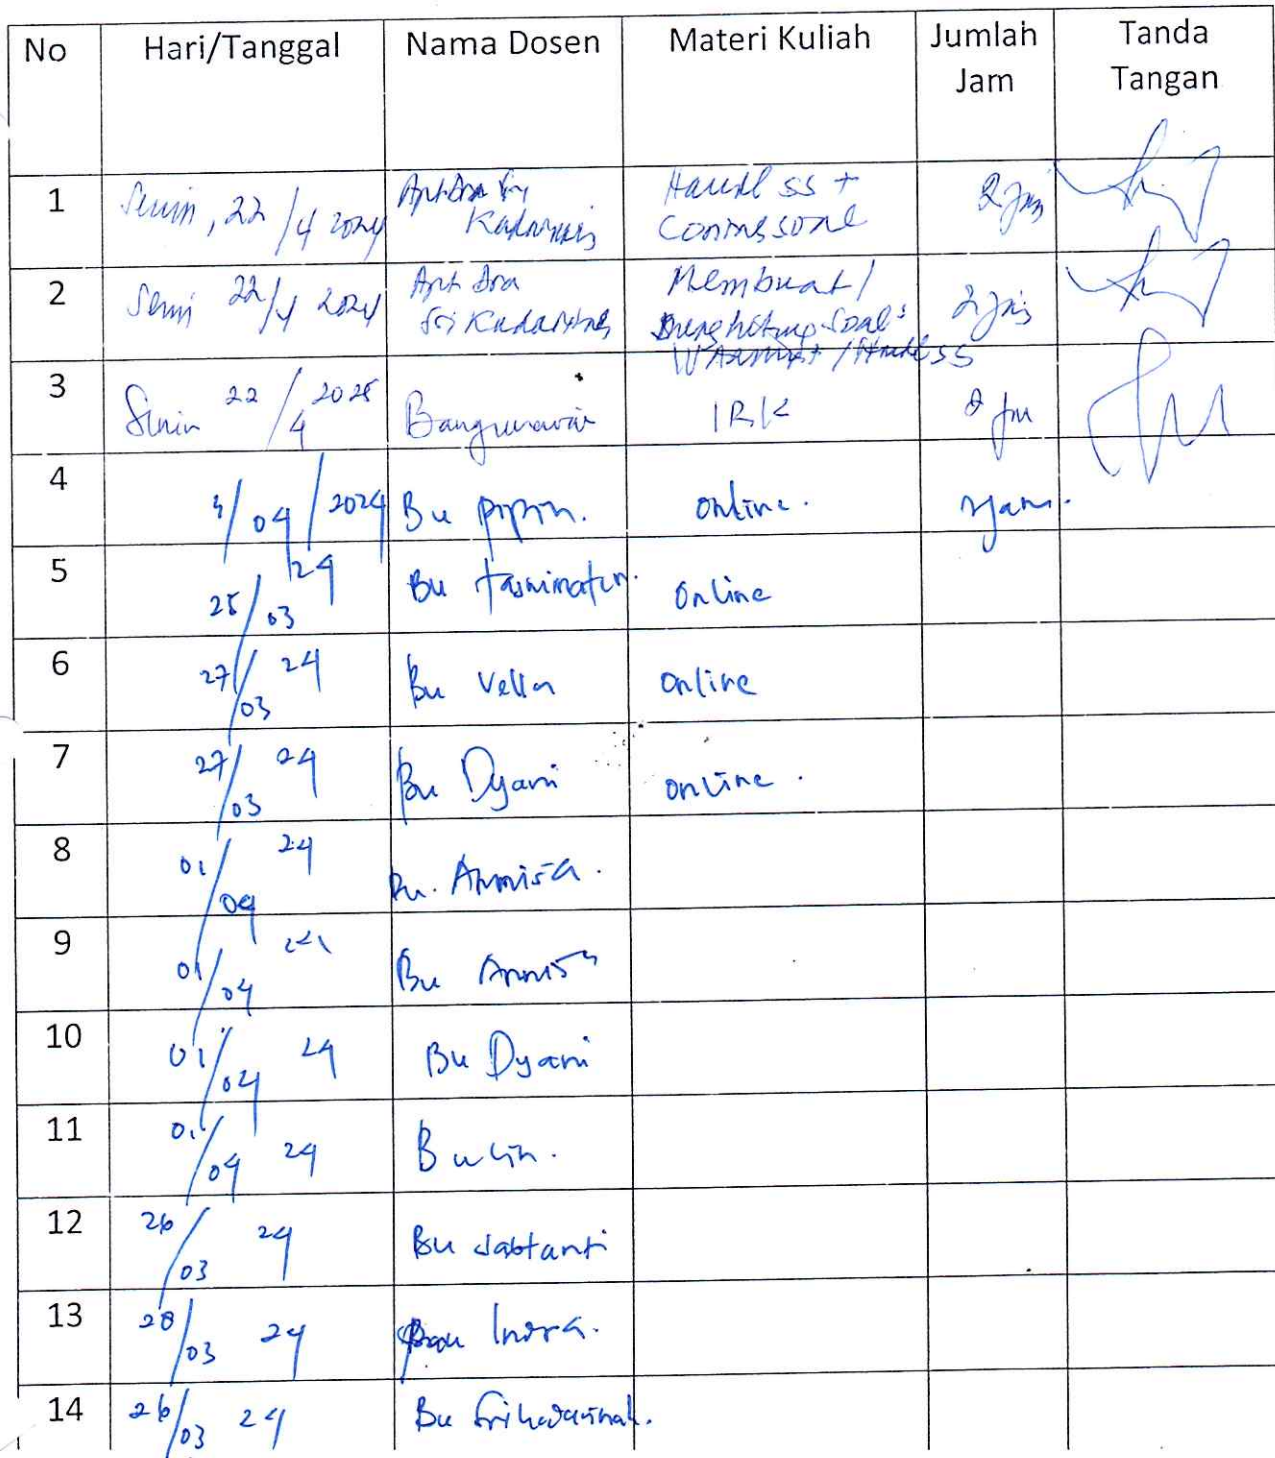 No Hari/Tanggal Nama Dosen Materi Kuliah Jumlah Jam Tanda Tangan
1 Senin, 22/4 2024 Apt Dra Sri Kadarinah Haussl ss + 2 jam
2 Senin 22/4 2024 Apt Dra Sri Kadarinah Membuat / menghitung soal 2 jam
3 Senin 22/4 Bangunawan IRK 2 jam
4 04/2024 Bu pipin. online. 2 jam.
5 25/03 24 Bu tasminatun. online
6 27/03 24 Bu Vella online
7 27/03 24 Bu Dyani online.
8 01/04 24 Bu. Annisa.
9 01/04 24 Bu Annisa
10 01/04 24 Bu Dyani
11 01/04 24 Bu
12 26/03 24 Bu Sabtanti
13 28/03 24 Indra.
14 26/03 24 Bu